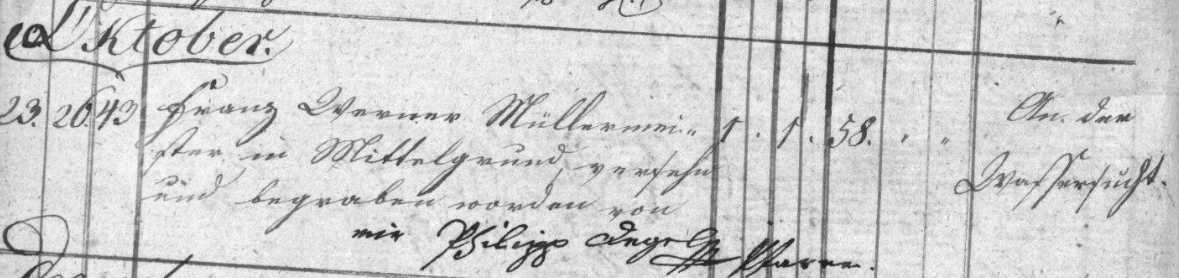 Oktober.
23. 26. 43 Franz Werner Müllermei- 1 . 1 . 58. " " An der
ster in Mittelgrund, versehn Wassersucht.
und begraben worden von
mir Philipp Pfarrer.